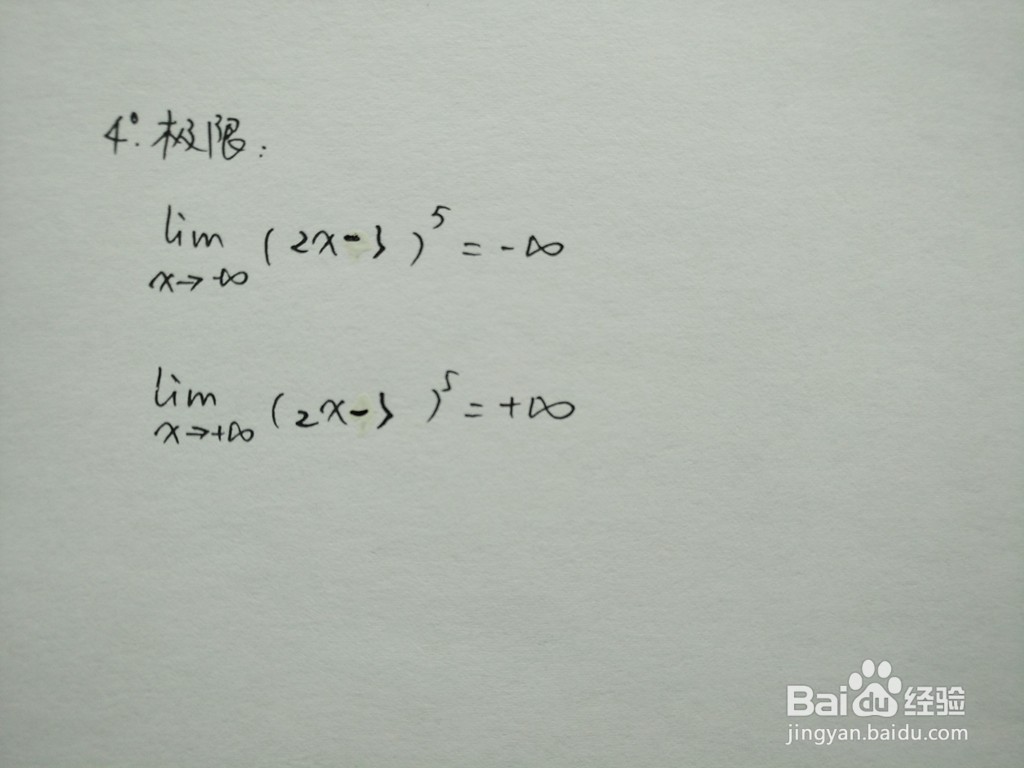 4°. 极限:
lim (2x-3)^5 = -∞
x→-∞
lim (2x-3)^5 = +∞
x→+∞
Baidu 经验
jingyan.baidu.com